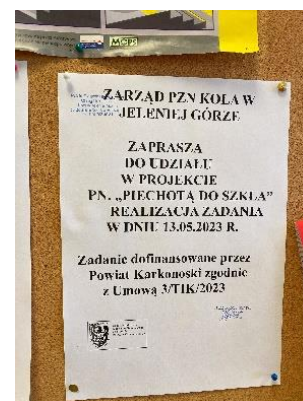 ZARZĄD PZN KOŁA W
JELENIEJ GÓRZE
ZAPRASZA
DO UDZIAŁU
W PROJEKCIE
PN. „PIECHOTĄ DO SZKŁA”
REALIZACJA ZADANIA
W DNIU 13.05.2023 R.
Zadanie dofinansowane przez
Powiat Karkonoski zgodnie
z Umową 3/TIK/2023